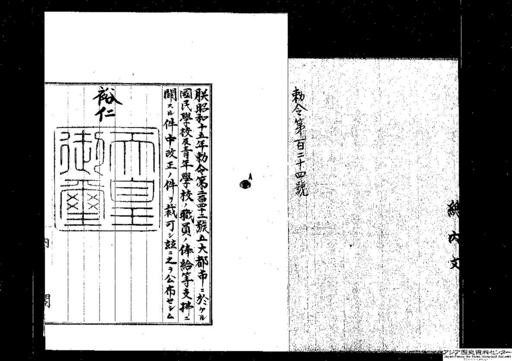 勅令第百二十四號
朕昭和十五年勅令第二百四十三號五大都市ニ於ケル
國民學校及青年學校ノ職員ノ俸給等支辨ニ
關スル件中改正ノ件ヲ裁可シ茲ニ之ヲ公布セシム
裕仁
天皇
御璽
内閣
アジア歴史資料センター